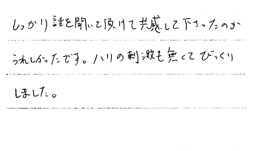 しっかり話を聞いて頂けて共感して下さったのが
うれしかったです。ハリの刺激も無くてびっくり
しました。